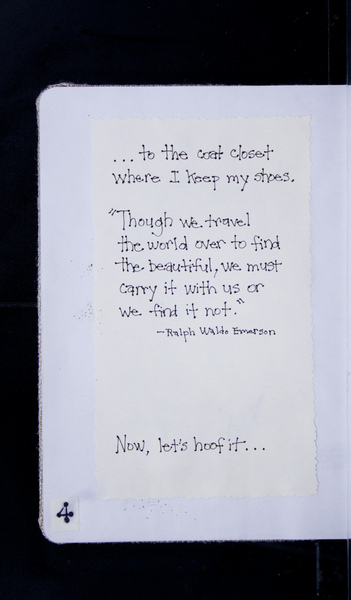 ...to the coat closet
where I keep my shoes.
"Though we travel
the world over to find
the beautiful, we must
carry it with us or
we find it not."
—Ralph Waldo Emerson
Now, let's hoof it...
4